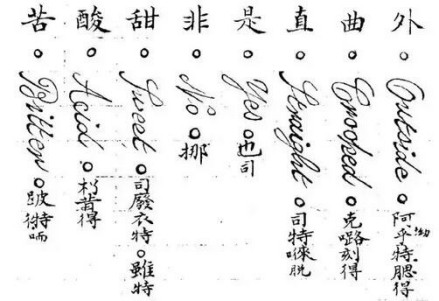 外 ○ Outside ○ 阿乎特腮得
曲 ○ Crooped ○ 克 刻得
直 ○ Straight ○ 司特
是 ○ Yes ○ 也司
非 ○ No ○ 挪
甜 ○ Sweet ○ 司廢衣特 ○ 雖特
酸 ○ Acid ○ 昔得
苦 ○ Bitter ○